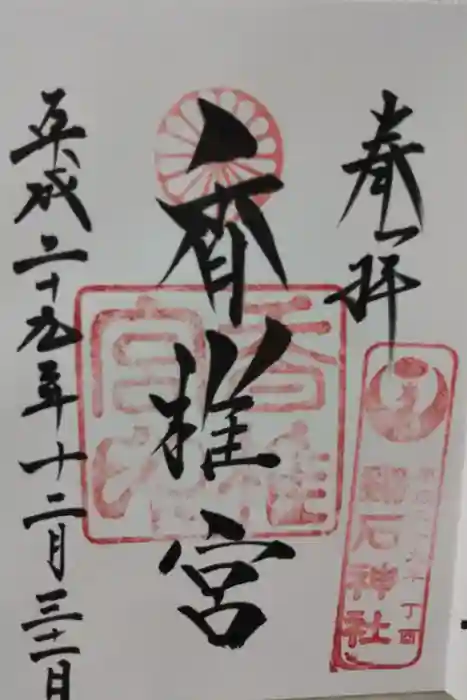 奉拝
鶏石神社
丁酉
香椎宮
香椎宮
平成二十九年十二月三十一日